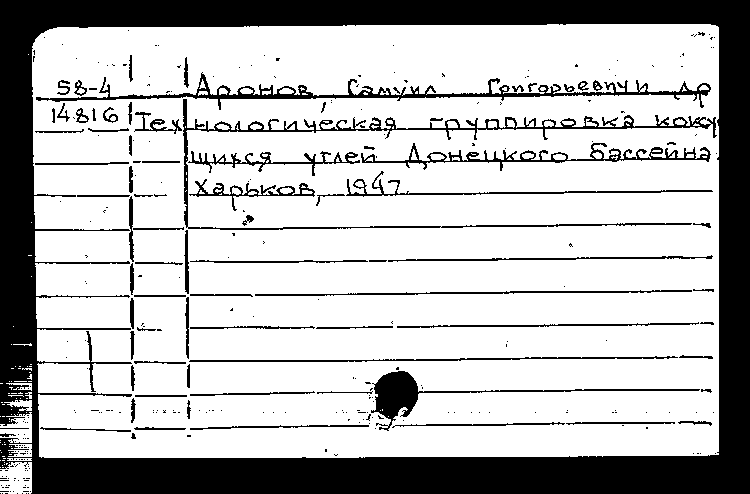 58-4 Аронов, Самуил Григорьевич и др
14816 Технологическая группировка коксу
щихся углей Донецкого бассейна.
Харьков, 1947.